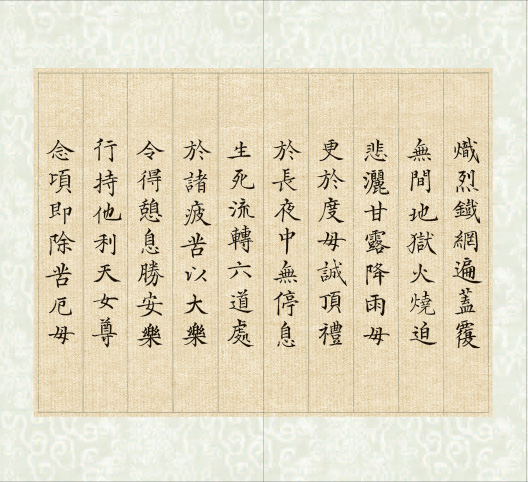 熾烈鐵網遍蓋覆
無間地獄火燒迫
悲灑甘露降雨母
更於度母誠頂禮
於長夜中無停息
生死流轉六道處
於諸疲苦以大樂
令得憩息勝安樂
行持他利天女尊
念頃即除苦厄母